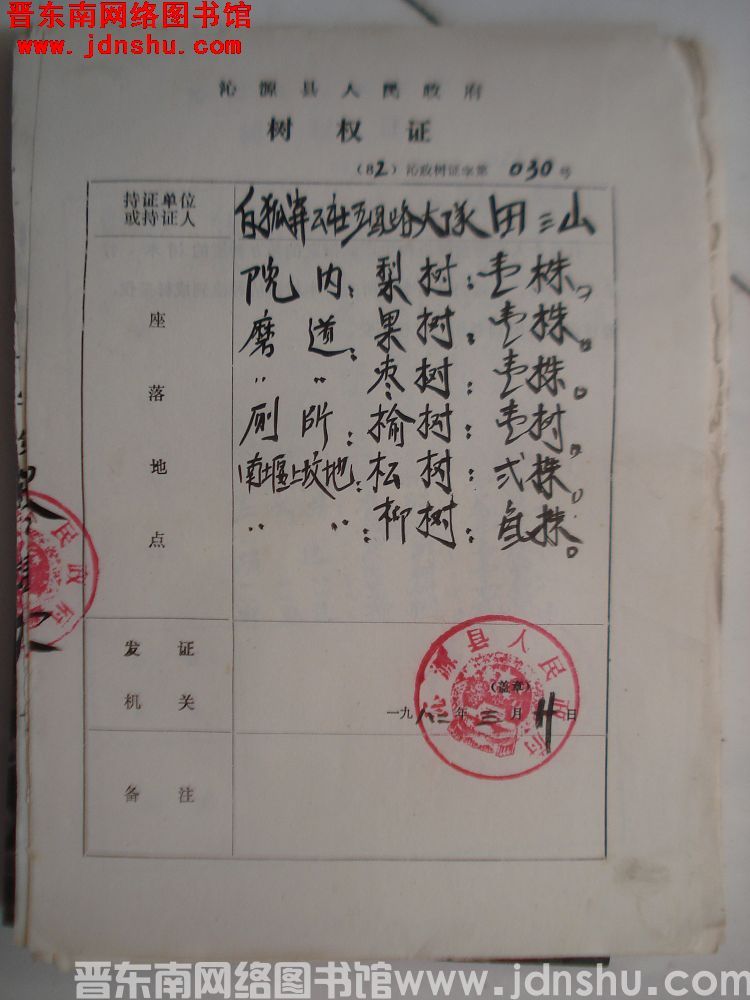 晋东南网络图书馆
www.jdnshu.com
沁源县人民政府
树权证
(82)沁政树证字第 030 号
持证单位
或持证人
白狐窑公社五里路大队 田三山
座落地点
院内:梨树:壱株。
磨道:果树:壱株。
〃 〃 枣树:壱株。
厕所:榆树:壱树。
南堰上坟地:松树:弍株。
〃 〃:柳树: 株。
发证
机关
沁源县人民政府
(盖章)
一九八二年三月廿日
备注
人民政府
晋东南网络图书馆www.jdnshu.com